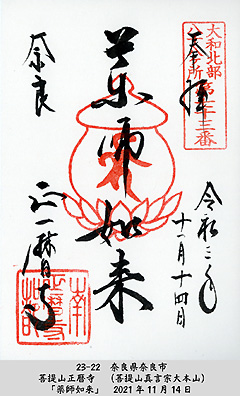 奉拝
大和北部
八十八ヶ所第二十三番
奈良
薬師如来
正暦寺
令和三年
十一月十四日
23-22 奈良県奈良市
菩提山正暦寺 (菩提山真言宗大本山)
「薬師如来」 2021年11月14日